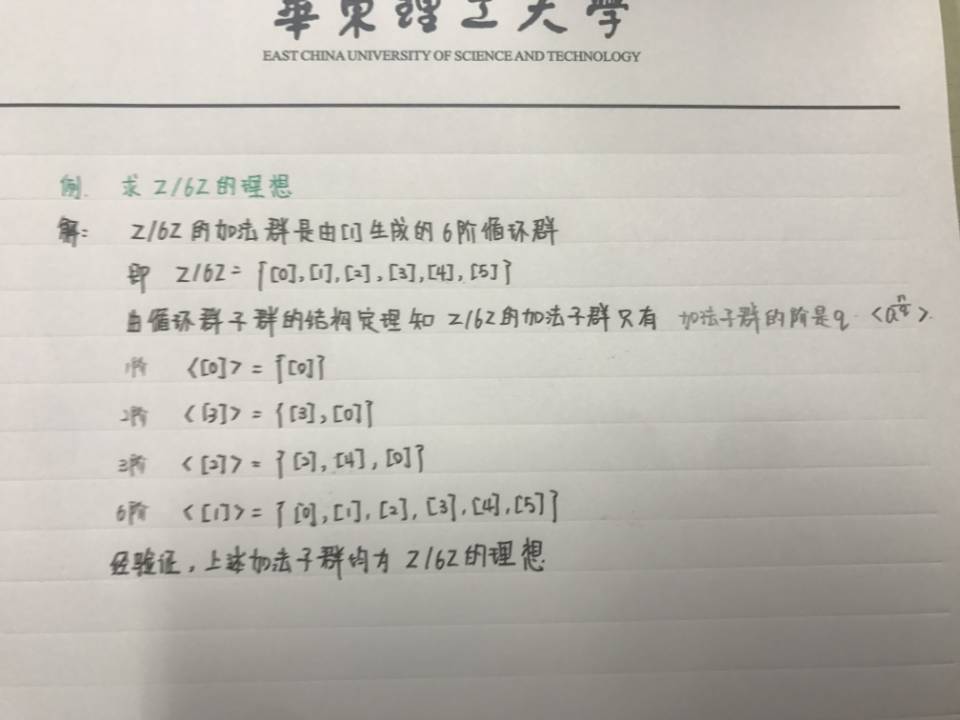 華東理工大学
EAST CHINA UNIVERSITY OF SCIENCE AND TECHNOLOGY
例. 求 Z/6Z 的理想
解: Z/6Z 的加法群是由[1]生成的6阶循环群
即 Z/6Z = {[0],[1],[2],[3],[4],[5]}
由循环群子群的结构定理知 Z/6Z的加法子群只有 加法子群的阶是q. <a^{n/q}>.
1阶 <[0]> = {[0]}
2阶 <[3]> = {[3],[0]}
3阶 <[2]> = {[2],[4],[0]}
6阶 <[1]> = {[0],[1],[2],[3],[4],[5]}
经验证,上述加法子群均为 Z/6Z的理想.